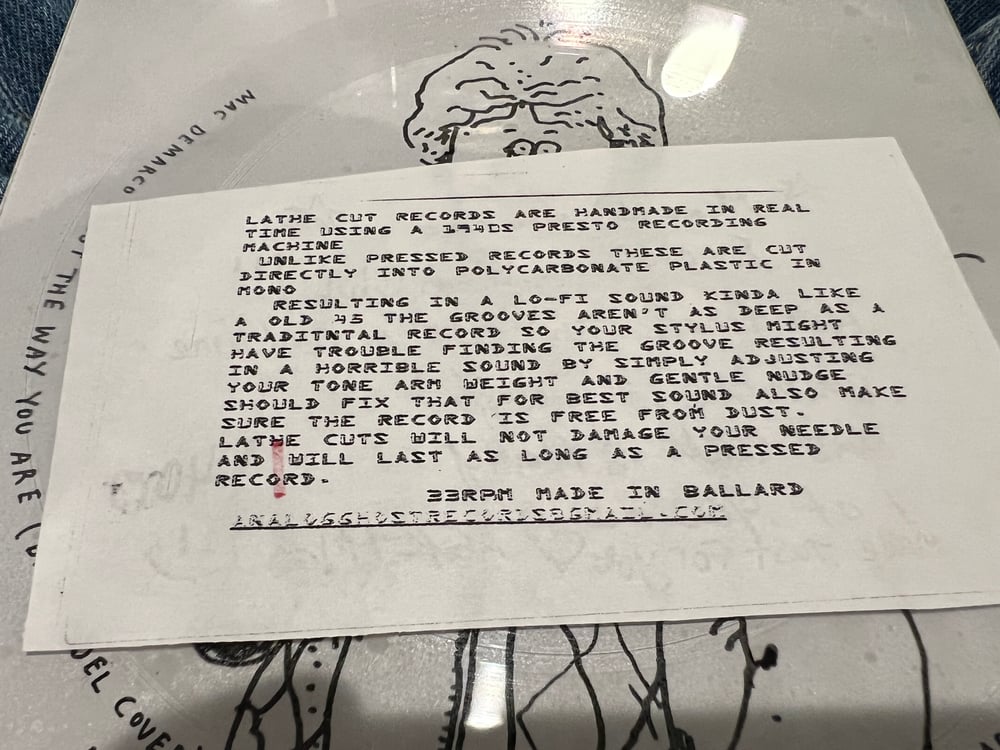 MAC DEMARCO
THE WAY YOU ARE
COVE
LATHE CUT RECORDS ARE HANDMADE IN REAL
TIME USING A 1940S PRESTO RECORDING
MACHINE
UNLIKE PRESSED RECORDS THESE ARE CUT
DIRECTLY INTO POLYCARBONATE PLASTIC IN
MONO
RESULTING IN A LO-FI SOUND KINDA LIKE
A OLD 45 THE GROOVES AREN'T AS DEEP AS A
TRADITNTAL RECORD SO YOUR STYLUS MIGHT
HAVE TROUBLE FINDING THE GROOVE RESULTING
IN A HORRIBLE SOUND BY SIMPLY ADJUSTING
YOUR TONE ARM WEIGHT AND GENTLE NUDGE
SHOULD FIX THAT FOR BEST SOUND ALSO MAKE
SURE THE RECORD IS FREE FROM DUST.
LATHE CUTS WILL NOT DAMAGE YOUR NEEDLE
AND WILL LAST AS LONG AS A PRESSED
RECORD.
33RPM MADE IN BALLARD
ANALOGGHOSTRECORDS@GMAIL.COM